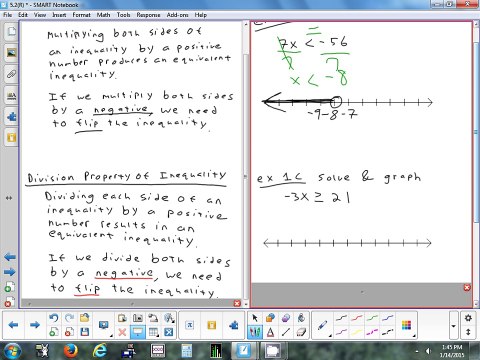 5.2(R) * - SMART Notebook
Multiplying both sides of
an inequality by a positive
number produces an equivalent
inequality.
If we multiply both sides
by a negative, we need
to flip the inequality.
Division Property of Inequality
Dividing each side of an
inequality by a positive
number results in an
equivalent inequality.
If we divide both sides
by a negative, we need
to flip the inequality.
=
7x < -56
7 7
x < -8
-9 -8 -7
ex 1c solve & graph
-3x ≥ 21
1:45 PM
1/14/2015